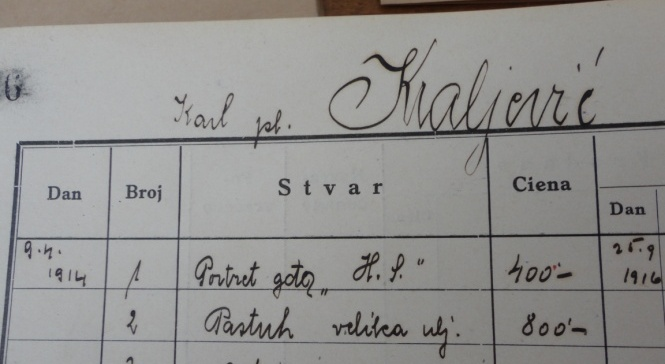 6
Karl pl. Kraljević
Dan Broj Stvar Ciena Dan
9.4. 1914 1 Portret gđa „H. S." 400- 25.9 1916
2 Pastuh velika ulj. 800-